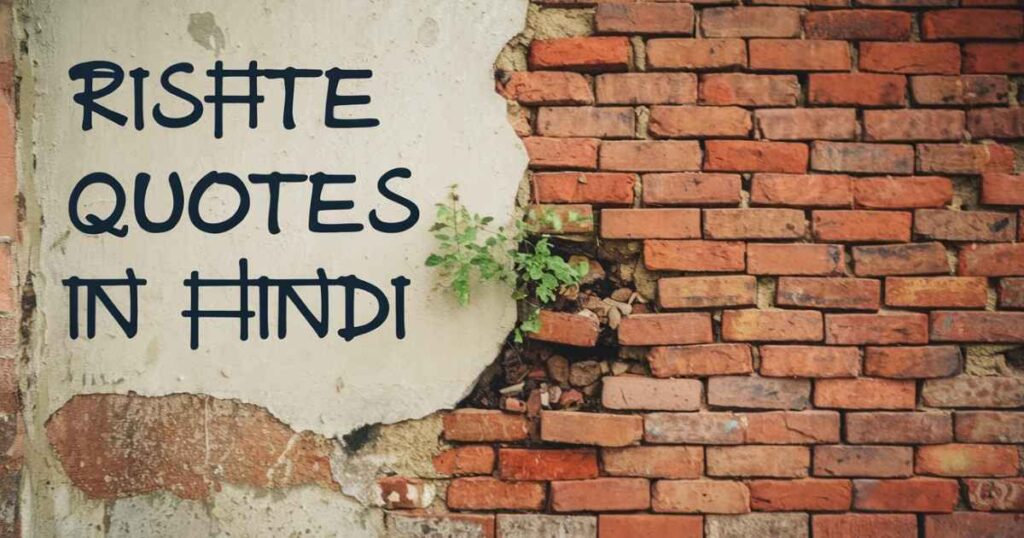 RISHTE
QUOTES
IN HINDI